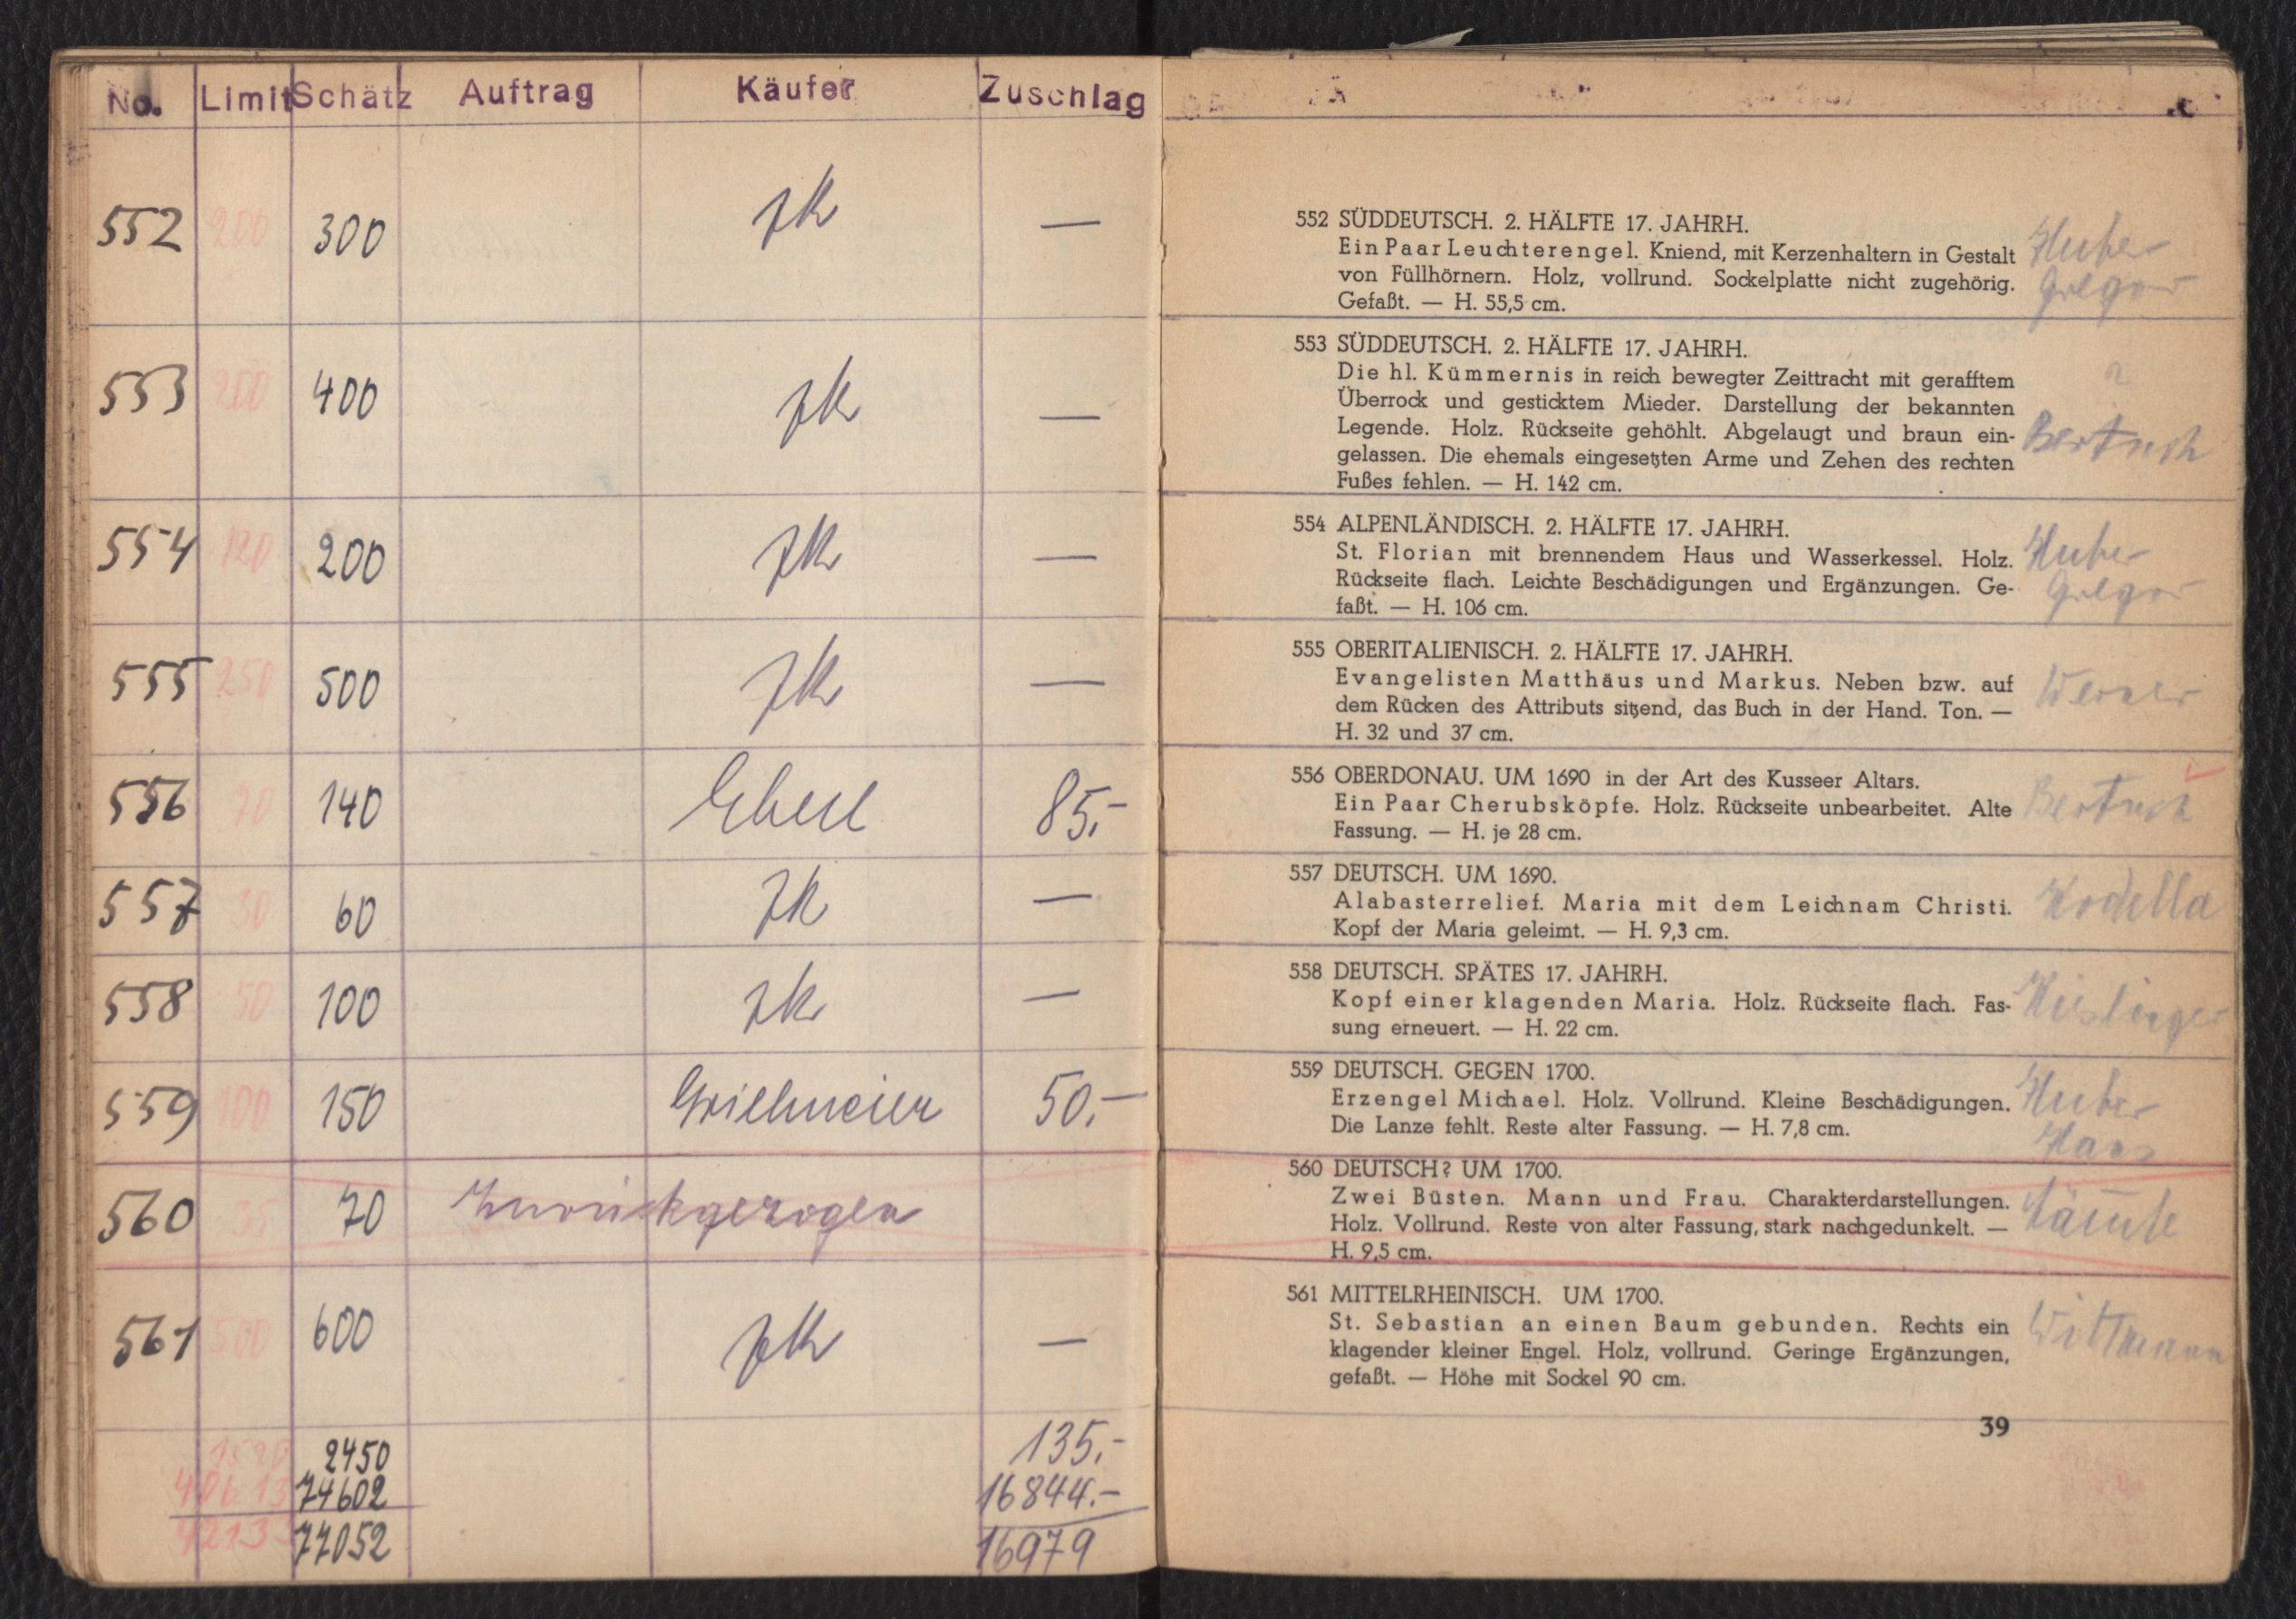 No. Limit Schätz Auftrag Käufer Zuschlag
552 200 300 —
553 200 400 —
554 120 200 —
555 250 500 —
556 70 140 Eberl 85,-
557 30 60 —
558 50 100 —
559 100 150 Grillmeier 50,-
560 35 70 Zurückgezogen
561 500 600 —
2450 135,-
40613 74602 16844.-
77052 16979
552 SÜDDEUTSCH. 2. HÄLFTE 17. JAHRH.
Ein Paar Leuchterengel. Kniend, mit Kerzenhaltern in Gestalt
von Füllhörnern. Holz, vollrund. Sockelplatte nicht zugehörig.
Gefaßt. — H. 55,5 cm.
Huber
Gregor
553 SÜDDEUTSCH. 2. HÄLFTE 17. JAHRH.
Die hl. Kümmernis in reich bewegter Zeittracht mit gerafftem
Überrock und gesticktem Mieder. Darstellung der bekannten
Legende. Holz. Rückseite gehöhlt. Abgelaugt und braun ein-
gelassen. Die ehemals eingesetzten Arme und Zehen des rechten
Fußes fehlen. — H. 142 cm.
Bertuch
554 ALPENLÄNDISCH. 2. HÄLFTE 17. JAHRH.
St. Florian mit brennendem Haus und Wasserkessel. Holz.
Rückseite flach. Leichte Beschädigungen und Ergänzungen. Ge-
faßt. — H. 106 cm.
Huber
Gregor
555 OBERITALIENISCH. 2. HÄLFTE 17. JAHRH.
Evangelisten Matthäus und Markus. Neben bzw. auf
dem Rücken des Attributs sitzend, das Buch in der Hand. Ton. —
H. 32 und 37 cm.
Werner
556 OBERDONAU. UM 1690 in der Art des Kusseer Altars.
Ein Paar Cherubsköpfe. Holz. Rückseite unbearbeitet. Alte
Fassung. — H. je 28 cm.
Bertuch
557 DEUTSCH. UM 1690.
Alabasterrelief. Maria mit dem Leichnam Christi.
Kopf der Maria geleimt. — H. 9,3 cm.
Kodella
558 DEUTSCH. SPÄTES 17. JAHRH.
Kopf einer klagenden Maria. Holz. Rückseite flach. Fas-
sung erneuert. — H. 22 cm.
Kieslinger
559 DEUTSCH. GEGEN 1700.
Erzengel Michael. Holz. Vollrund. Kleine Beschädigungen.
Die Lanze fehlt. Reste alter Fassung. — H. 7,8 cm.
Huber
Hans
560 DEUTSCH? UM 1700.
Zwei Büsten. Mann und Frau. Charakterdarstellungen.
Holz. Vollrund. Reste von alter Fassung, stark nachgedunkelt. —
H. 9,5 cm.
561 MITTELRHEINISCH. UM 1700.
St. Sebastian an einen Baum gebunden. Rechts ein
klagender kleiner Engel. Holz, vollrund. Geringe Ergänzungen,
gefaßt. — Höhe mit Sockel 90 cm.
Wittmann
39